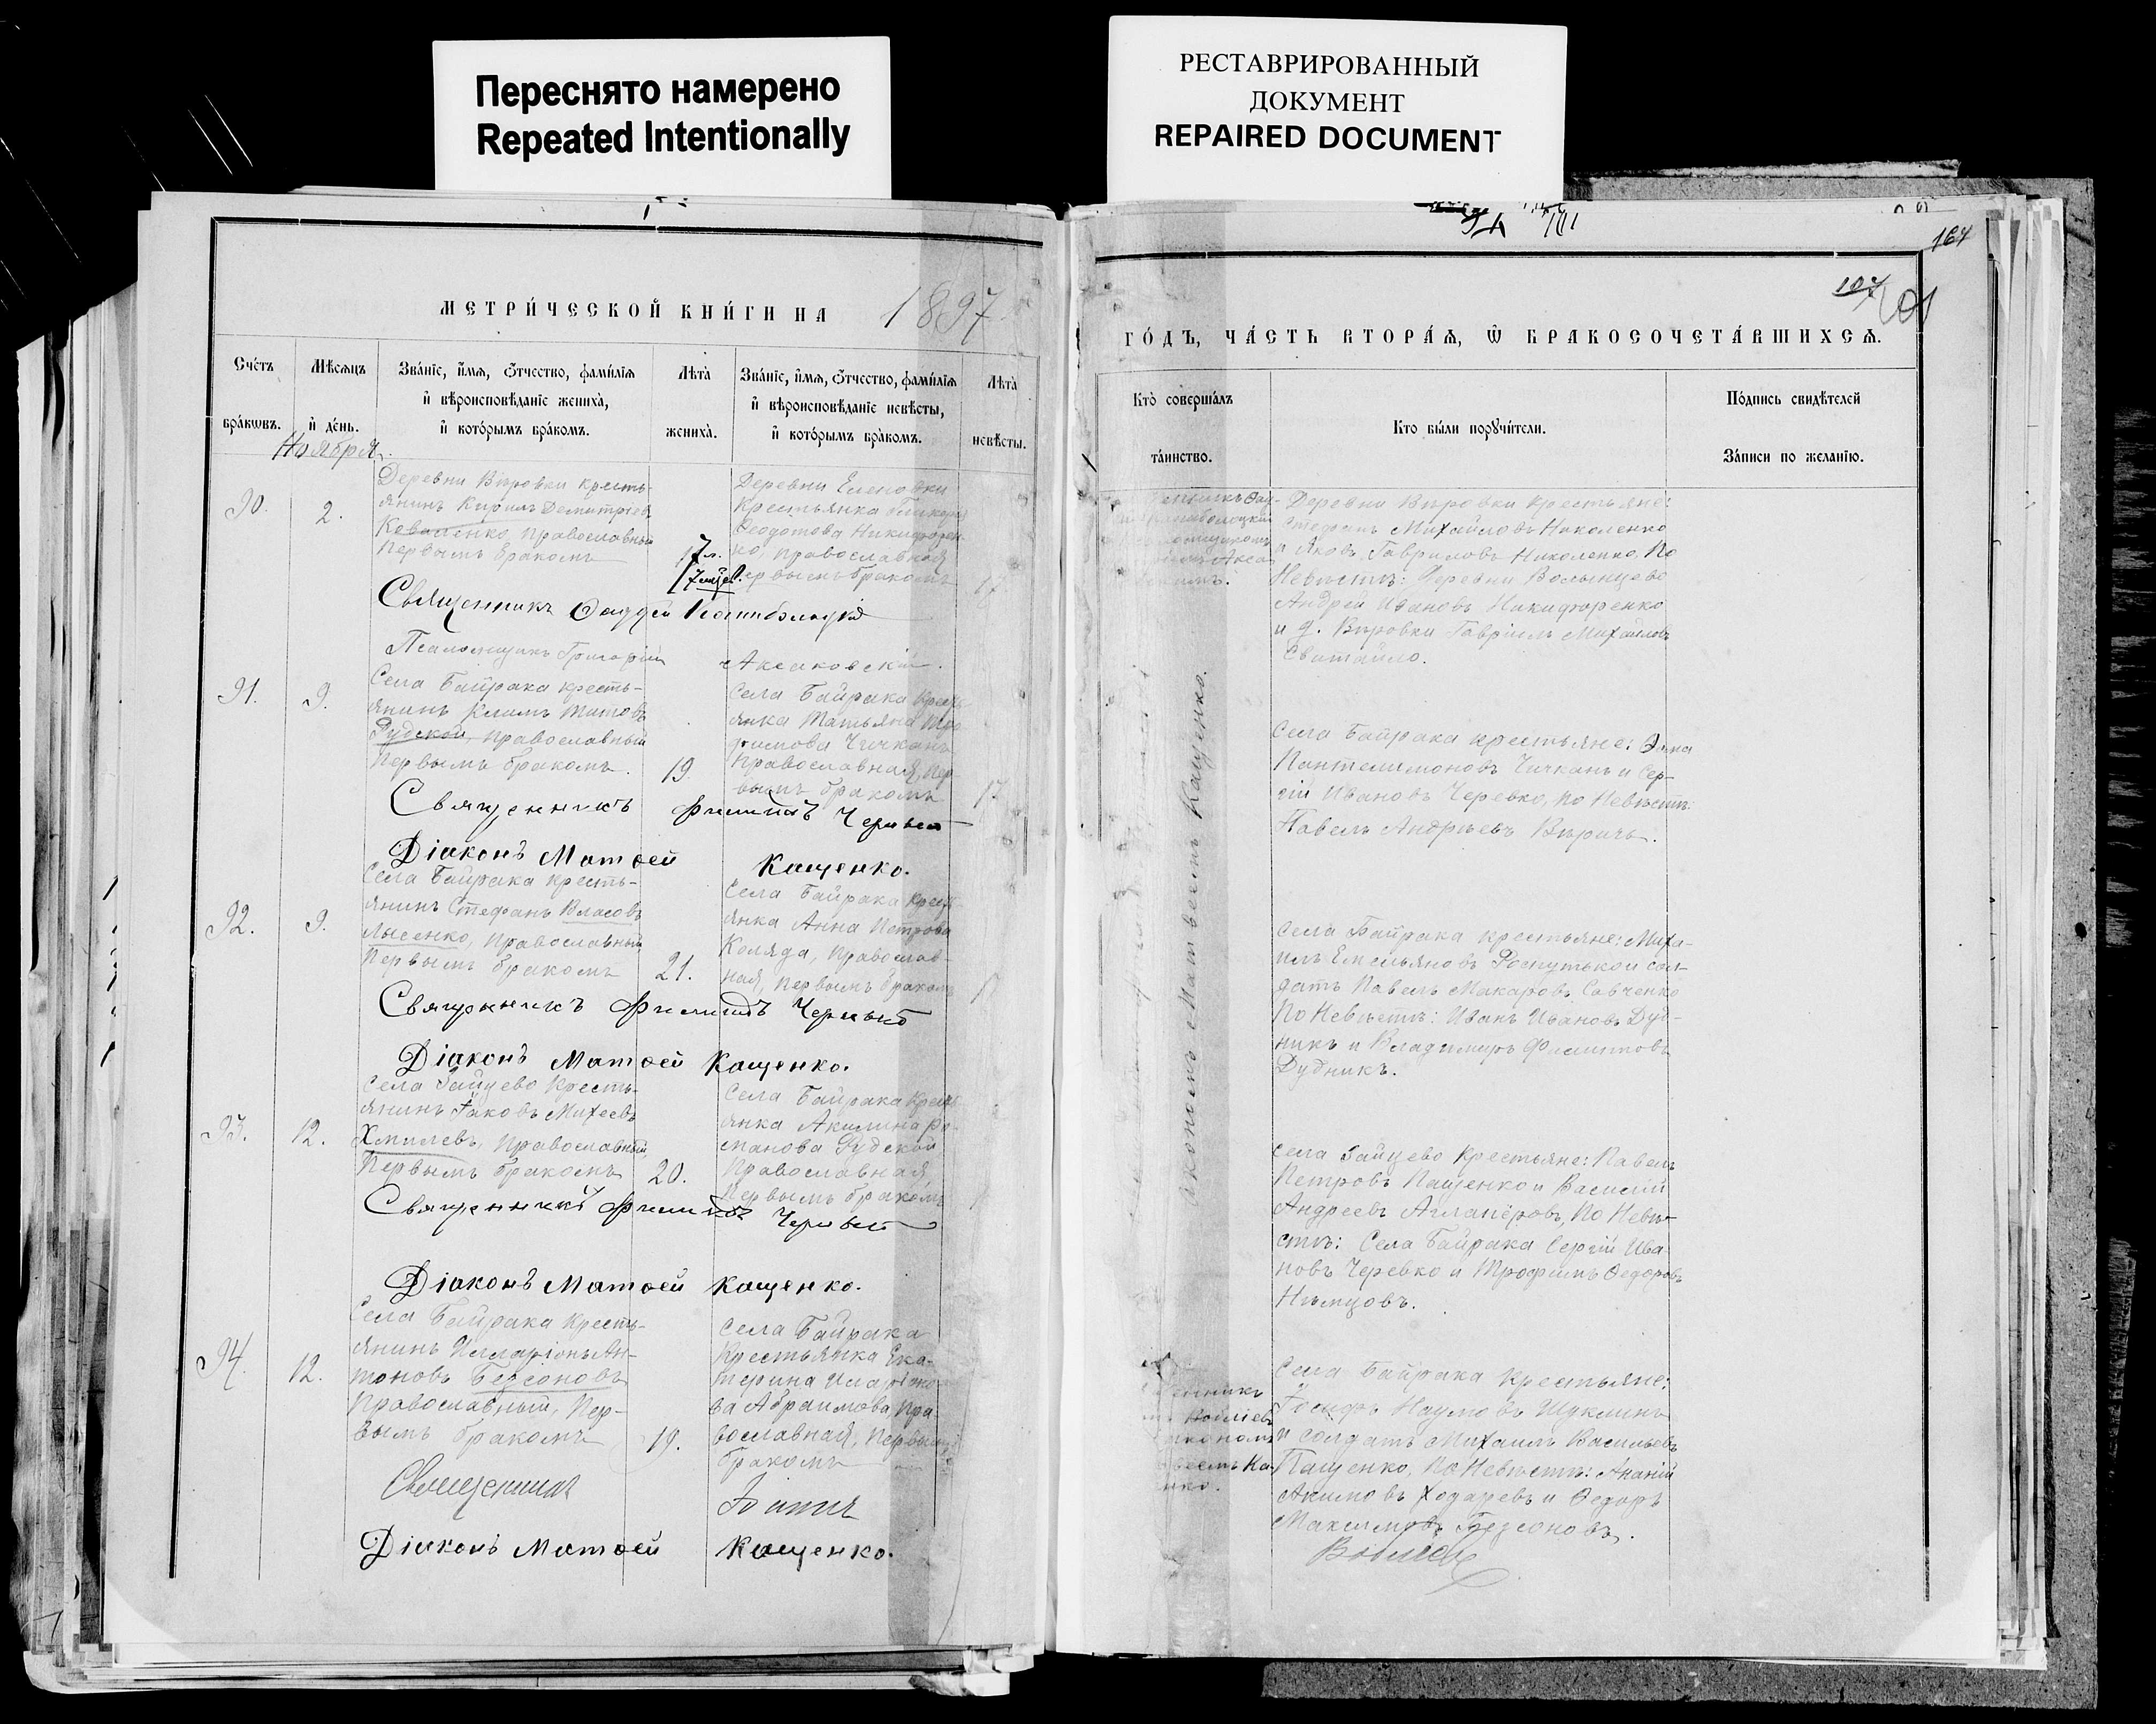 Переснято намерено
Repeated Intentionally
РЕСТАВРИРОВАННЫЙ
ДОКУМЕНТ
REPAIRED DOCUMENT
164
107
МЕТРИ́ЧЕСКОЙ КНИ́ГИ НА 1897
Сче́тъ
бра́кѡвъ.
Мѣ́сѧцъ
и҆ де́нь.
Ноября
Зва́нїе, и҆́мѧ, ѻ҆́тчество, фами́лїѧ
и҆ вѣроисповѣ́данїе жениха̀,
и҆ кото́рымъ бра́комъ.
Лѣ́та
жениха̀.
Зва́нїе, и҆́мѧ, ѻ҆́тчество, фами́лїѧ
и҆ вѣроисповѣ́данїе невѣ́сты,
и҆ кото́рымъ бра́комъ.
Лѣ́та
невѣ́сты.
90.
2.
Деревни Вѣровки кресть-
янинъ Кирилъ Димитріевъ
Коваленко, православный
Первымъ бракомъ
17 л.
7 мѣс.
Деревни Еленовки
Крестьянка
Ѳеодотова Никифорен-
ко, православная
Первымъ бракомъ
17
Священникъ Ѳаддей
Псаломщикъ Григорій Аксаковскій.
91.
9.
Села Байрака кресть-
янинъ Климъ Титовъ
Рудской, православный
Первымъ бракомъ.
19.
Села Байрака Кресть-
янка Татьяна Тро-
фимова Чичкань
Православная, Пер-
вымъ бракомъ
17.
Священникъ Филиппъ
Діаконъ Матѳей Кащенко.
92.
9.
Села Байрака кресть-
янинъ Стефанъ Власовъ
Лысенко, Православный
Первымъ бракомъ
21.
Села Байрака Крест-
янка Анна Петрова
Коляда, Православ-
ная, Первымъ бракомъ
Священникъ Филиппъ
Діаконъ Матѳей Кащенко.
93.
12.
Села Зайцево Кресть-
янинъ Іаковъ Михеевъ
Хмилевъ, Православный
Первымъ бракомъ
20.
Села Байрака Крест-
янка Акилина Ро-
манова Рудской
Православная,
Первымъ бракомъ
Священникъ Филиппъ
Діаконъ Матѳей Кащенко.
94.
12.
Села Байрака Кресть-
янинъ Илларіонъ Ан-
тоновъ Безсоновъ
Православный, Пер-
вымъ бракомъ
19.
Села Байрака
Крестьянка Ека-
терина Иларіоно-
ва Абраимова, Пра-
вославная, Первымъ
бракомъ
Священникъ
Діаконъ Матѳей Кащенко.
ГО́ДЪ, ЧА́СТЬ ВТОРА́Ѧ, Ѽ БРАКОСОЧЕТА́ВШИХСѦ.
Кто̀ соверша́лъ
та́инство.
Кто бы́ли порꙋчи́тели.
По́дпись свидѣ́телей
За́писи по жела́нїю.
Деревни Вѣровки Крестьяне:
Стефанъ Михайловъ Николенко
и Яковъ Гавриловъ Николенко, По
Невѣстѣ: Деревни Волынцево
Андрей Ивановъ Никифоренко
и д. Вѣровки Гавріилъ Михайловъ
Свитайло.
Матвеемъ Кащенко.
Села Байрака крестьяне: Ѳома
Пантелимоновъ Чичкань и Сер-
гій Ивановъ Черевко, по Невѣстѣ:
Павелъ Андреевъ Вѣричь.
Села Байрака крестьяне: Миха-
илъ Емельяновъ Роспутько и сол-
датъ Павелъ Макаровъ Савченко
По Невѣстѣ: Иванъ Ивановъ Дуд-
никъ и Владимиръ Филиповъ
Дудникъ.
Села Зайцево Крестьяне: Павелъ
Петровъ Пащенко и Василій
Андреевъ По Невѣ-
стѣ: Села Байрака Сергій Ива-
новъ Черевко и Трофимъ Ѳедоровъ
Нѣмцовъ.
Села Байрака Крестьяне:
Іосифъ Наумовъ Шуклинъ
и солдатъ Михаилъ Васильевъ
Пащенко, По Невѣстѣ: Ананій
Акимовъ Ходаревъ и Ѳедоръ
Максимовъ Безсоновъ.